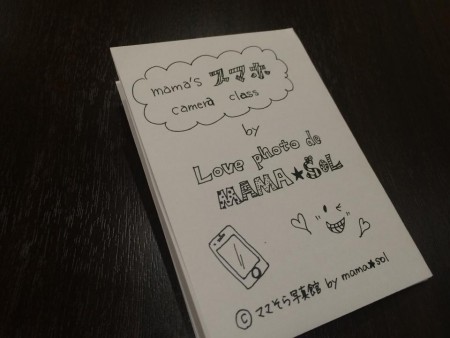 mama's スマホ
camera class
by
Love photo de
MAMA★SoL
© ママそら写真館 by mama★sol